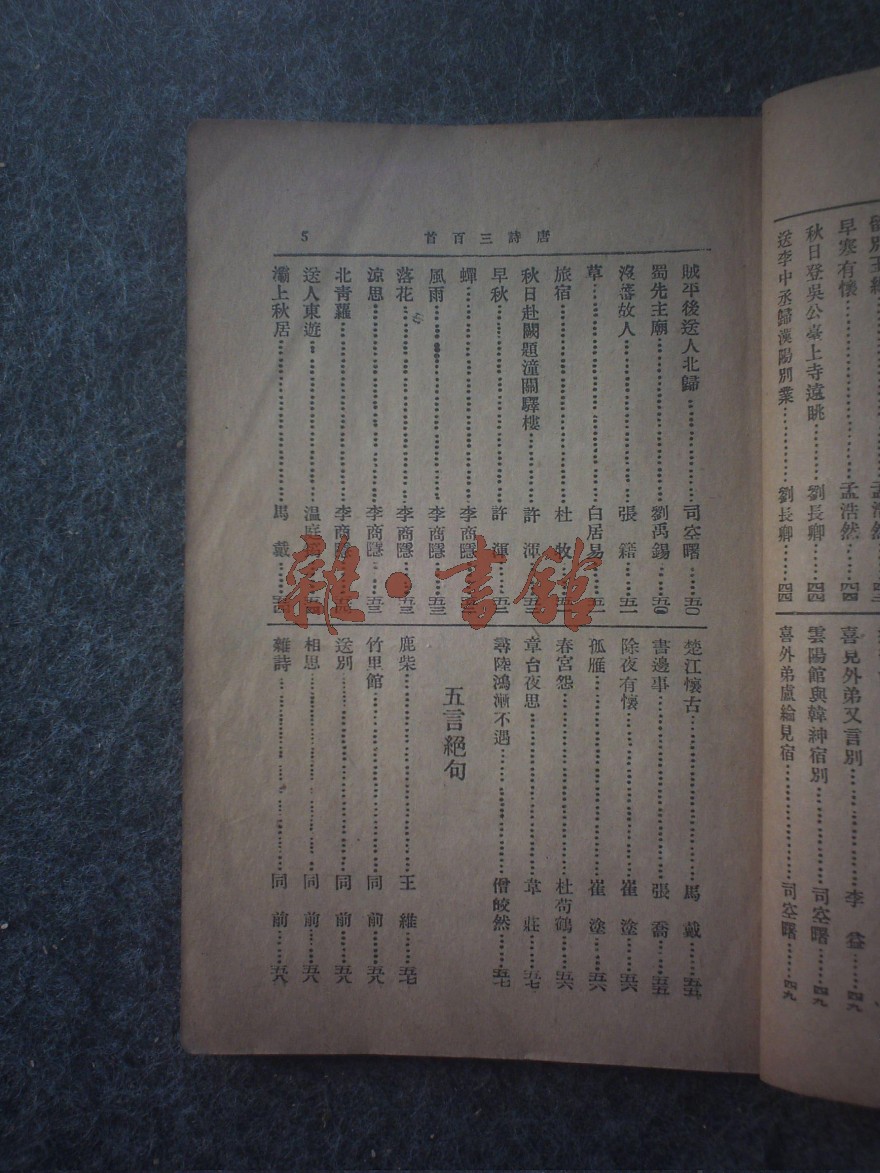 早寒有懷……孟浩然……四四
秋日登吳公臺上寺遠眺……劉長卿……四四
送李中丞歸漢陽別業……劉長卿……四四
喜見外弟又言別……李益……四九
雲陽館與韓紳宿別……司空曙……四九
喜外弟盧綸見宿……司空曙……四九
唐詩三百首
5
賊平後送人北歸……司空曙……五〇
蜀先主廟……劉禹錫……五〇
沒蕃故人……張籍……五一
草……白居易……五一
旅宿……杜牧……
秋日赴闕題潼關驛樓……許渾……
早秋……許渾……
蟬……李商隱……
風雨……李商隱……五三
落花……李商隱……五三
涼思……李商隱……五三
北青蘿……李商隱……
送人東遊……溫庭筠……
灞上秋居……馬戴……五四
楚江懷古……馬戴……五五
書邊事……張喬……五五
除夜有懷……崔塗……五六
孤雁……崔塗……五六
春宮怨……杜荀鶴……五六
章台夜思……韋莊……五七
尋陸鴻漸不遇……僧皎然……五七
五言絕句
鹿柴……王維……五七
竹里館……同前……五八
送別……同前……五八
相思……同前……五八
雜詩……同前……五八
雜·書館